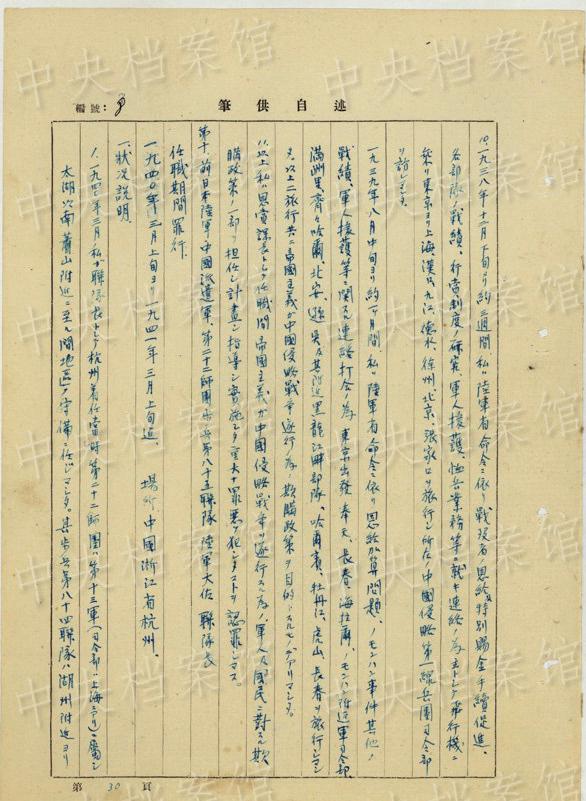 筆供自述
編號：
10.一九三八年十二月下旬ヨリ約三週間私ハ陸軍省命令ニ依リ戦没者恩給及特別賜金手續促進、
各部隊ノ戦績、行賞制度ノ研究、軍人援護、恤兵業務等ニ就キ連絡ノ為主トシテ飛行機ニ
乗リ東京ヨリ上海、漢口、九江、徐州、北京、張家口ヲ旅行シ所在ノ中國侵略第一線兵團司令部
ヲ訪レマシタ。
一九三九年八月中旬ヨリ約一ケ月間、私ハ陸軍省命令ニ依リ恩給加算問題、ノモンハン事件其他ノ
戦績、軍人援護等ニ関スル連絡打合ノ為東京出發奉天、長春、海拉爾、ノモンハン附近軍司令部、
満洲里、齊々哈爾、北安、孫吳及其附近黑龍江畔部隊、哈爾賓、牡丹江、虎山、長春ヲ旅行シマシ
タ。以上二旅行共ニ帝國主義ガ中國侵略戦争遂行ノ為ノ欺瞞政策ヲ目的トスルモノデアリマシタ。
11.以上私ハ恩賞課長トシテ任職間帝國主義ガ中國侵略戦争ヲ遂行スル為ノ軍人及國民ニ對スル欺
瞞政策ノ一部ヲ担任シ計畫シ指導シ實施シタ重大ナ罪悪ヲ犯シタコトヲ認罪シマス。
第十、前日本陸軍中國派遣軍、第二十二師團歩兵第八十五聯隊陸軍大佐聯隊長
任職期間罪行。
一九四〇年三月上旬ヨリ一九四一年三月上旬迄、場所、中國浙江省杭州。
一、狀況説明。
1.一九四〇年三月ノ私ガ聯隊長トシテ杭州着任當時第二十二師團ハ第十三軍（司令部ハ上海ニアリ）ニ屬シ
太湖以南蕭山附近ニ至ル間地區ノ守備ニ任ジマシタ。其歩兵第八十四聯隊ハ湖州附近ヨリ
第 30 頁
中央档案馆